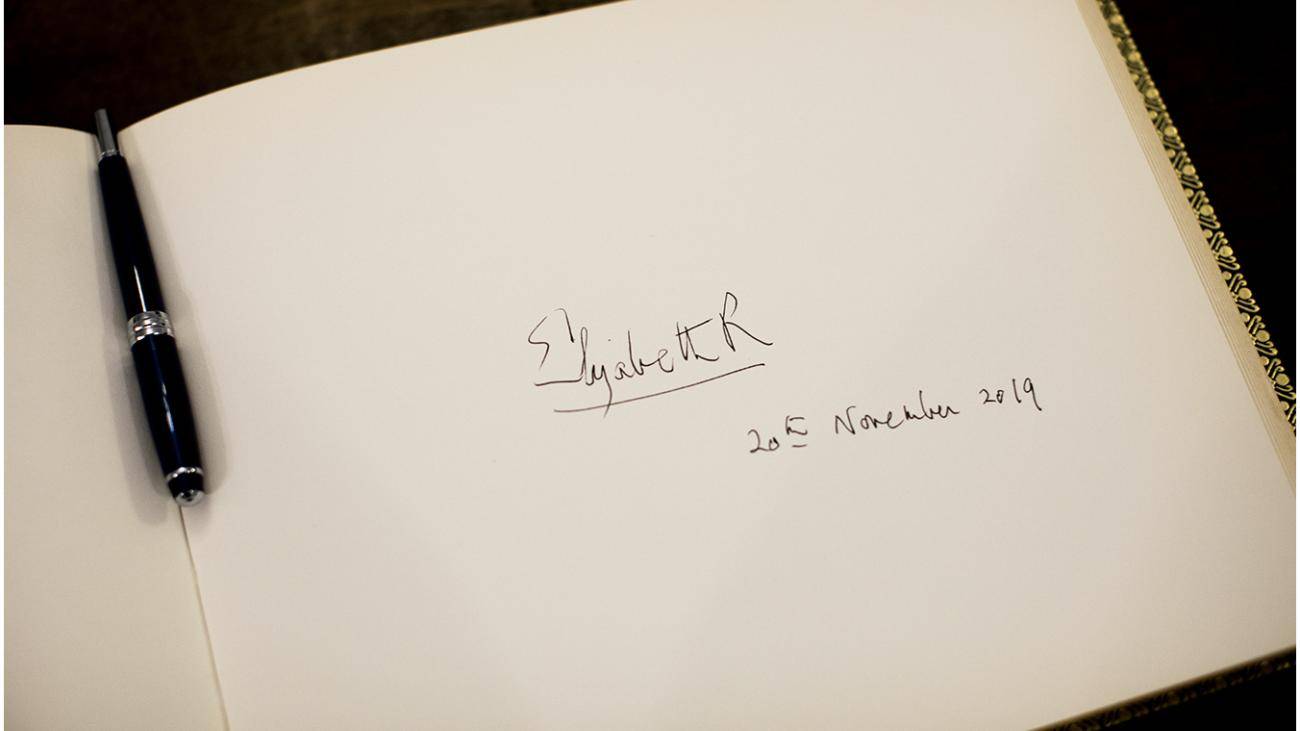 Elizabeth R
20th November 2019